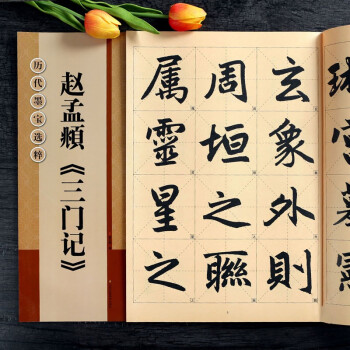 历代墨宝选粹
赵孟頫《三门记》
玄象外則
周垣之聯
属靈星之